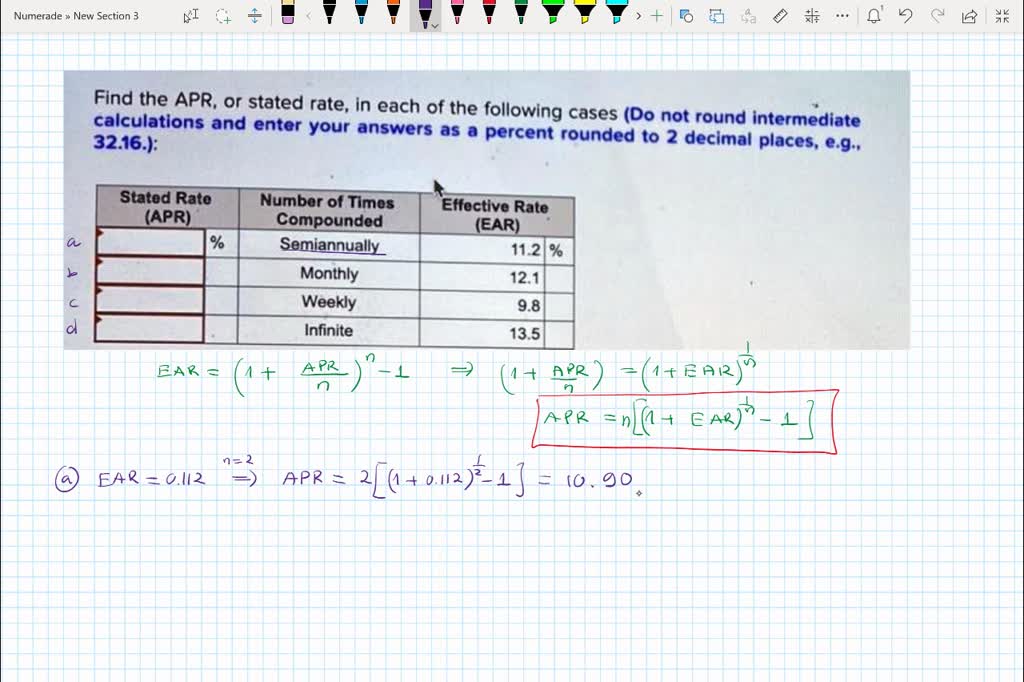 Numerade » New Section 3
Find the APR, or stated rate, in each of the following cases (Do not round intermediate
calculations and enter your answers as a percent rounded to 2 decimal places, e.g.,
32.16.):
Stated Rate (APR) Number of Times Compounded Effective Rate (EAR)
a % Semiannually 11.2 %
b Monthly 12.1
c Weekly 9.8
d Infinite 13.5
EAR = (1 + APR/n)^n - 1 ⇒ (1 + APR/n) = (1 + EAR)^1/n
APR = n[(1 + EAR)^1/n - 1]
(a) EAR = 0.112 n=2 ⇒ APR = 2[(1 + 0.112)^1/2 - 1] = 10.90